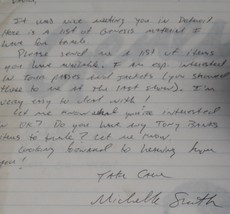 It was nice meeting you in Detroit
Here is a list of Genesis material I
have for trade.
Please send me a list of items
you have available. I am esp. interested
in tour passes and jackets (you showed
these to me at the last show). I'm
very easy to deal with!
Let me know what you're interested
in OK? Do you have any Tony Banks
items to trade? Let me know.
Looking forward to hearing from
you!
Take Care
Michelle Smith